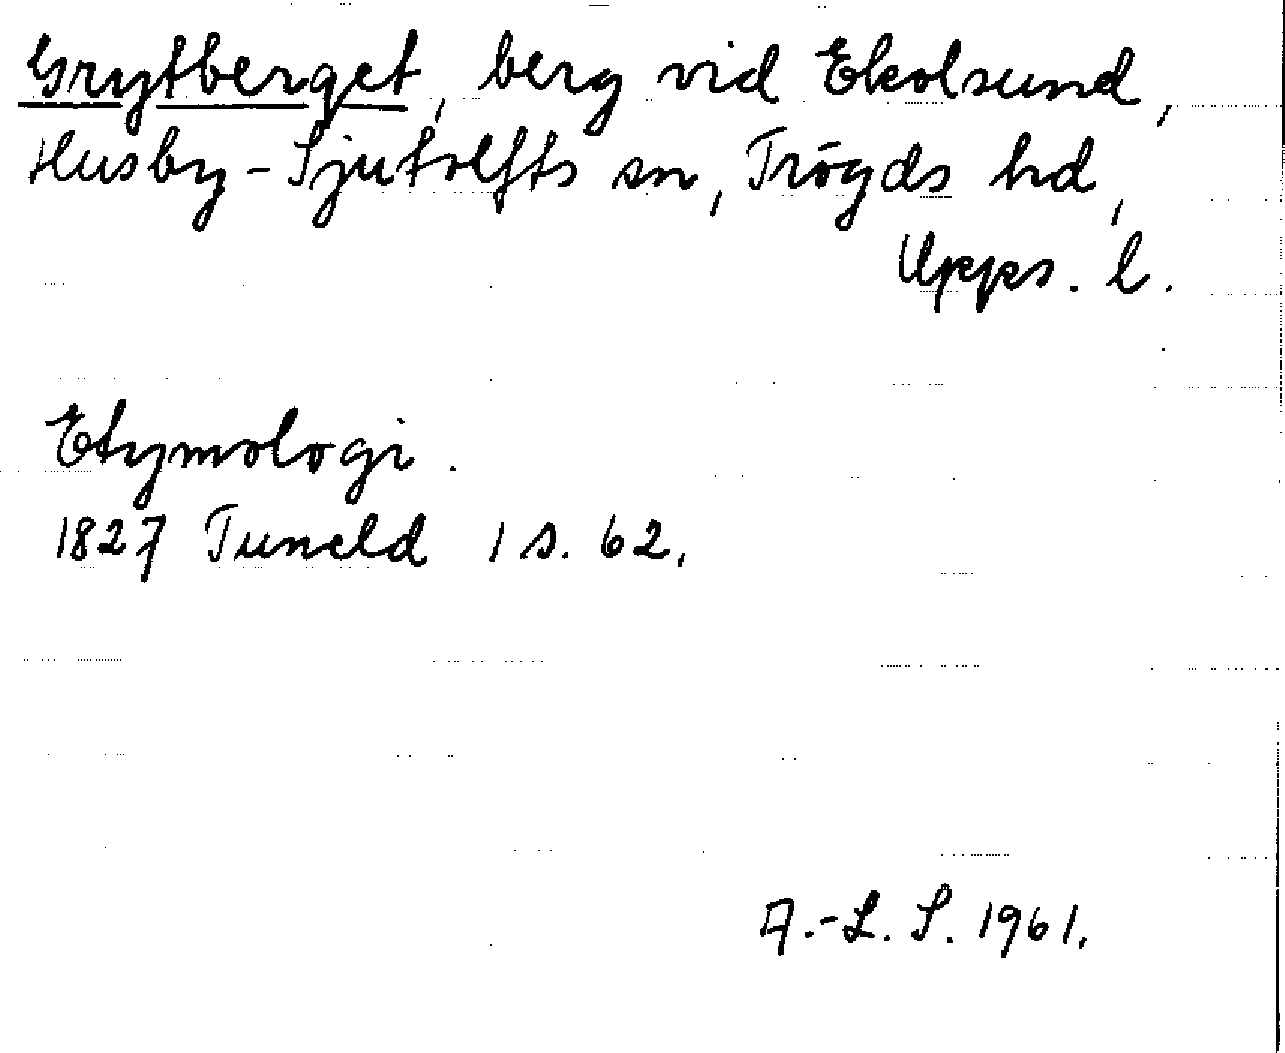 Grytberget, berg vid Ekolsund,
Husby-Sjutolfts sn, Trögds hd,
Upps. l.
Etymologi.
1827 Tuneld 1 s. 62.
A.-L. S. 1961.